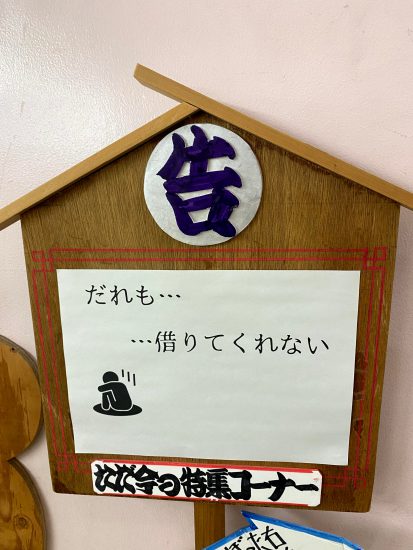 告
だれも…
…借りてくれない
ただ今の特集コーナー